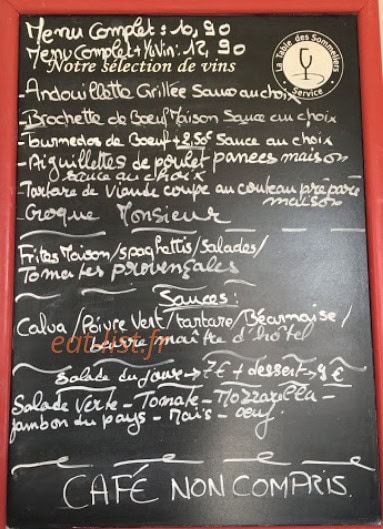 Menu Complet : 10,90
Menu Complet + 1/4 Vin : 12,90
Notre sélection de vins
La Table des Sommeliers
Service
- Andouillette Grillée Sauce au choix
- Brochette de Boeuf Maison Sauce au choix
- Tournedos de Boeuf + 2,50€ Sauce au choix
- Aiguillettes de poulet panées maison
sauce au choix
- Tartare de Viande coupé au couteau préparé
maison
- Croque Monsieur
Frites Maison / spaghettis / salades /
Tomates provençales
Sauces :
Calva / Poivre Vert / tartare / Béarnaise /
beurre maître d'hôtel
eat-list.fr
Salade du jour → 7€ + dessert → 9€
Salade Verte - Tomate - Mozzarella -
jambon du pays - Maïs - oeuf.
CAFÉ NON COMPRIS.